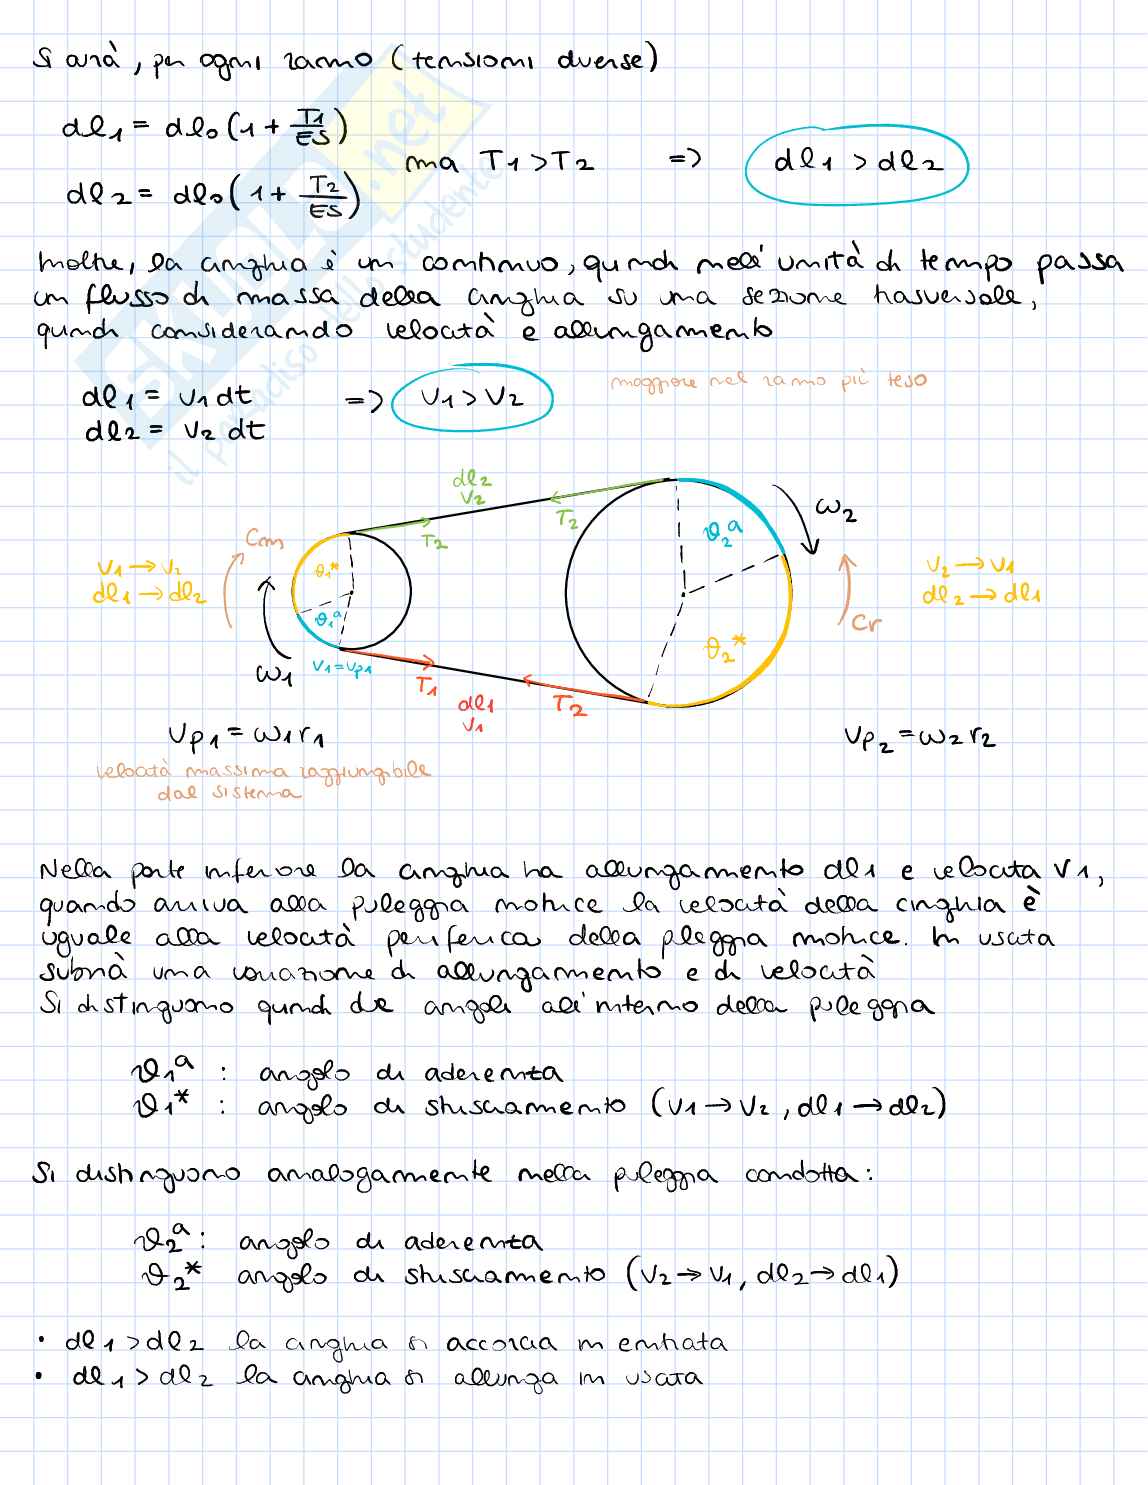 Si avrà, per ogni ramo (tensioni diverse)
dl1 = dl0 (1 + T1/ES)
ma T1 > T2 => dl1 > dl2
dl2 = dl0 (1 + T2/ES)
Inoltre, la cinghia è un continuo, quindi nell'unità di tempo passa
un flusso di massa della cinghia su una sezione trasversale,
quindi considerando velocità e allungamento
maggiore nel ramo più teso
dl1 = v1 dt => v1 > v2
dl2 = v2 dt
SKUOLA.net
il paradiso dello studente
dl2
v2
T2
T2
ϑ2ᵃ
ω2
Cm
v1 → v2
dl1 → dl2
ϑ1*
ϑ1ᵃ
v2 → v1
dl2 → dl1
Cr
ϑ2*
ω1
v1 = vp1
T1
dl1
v1
T2
vp1 = ω1 r1
vp2 = ω2 r2
velocità massima raggiungibile
dal sistema
Nella parte inferiore la cinghia ha allungamento dl1 e velocita v1,
quando arriva alla puleggia motrice la velocità della cinghia è
uguale alla velocità periferica della pleggia motrice. In uscita
subirà una variazione di allungamento e di velocità
Si distinguono quindi due angoli all'interno della puleggia
ϑ1ᵃ : angolo di aderenza
ϑ1* : angolo di strisciamento (v1 → v2, dl1 → dl2)
Si distinguono analogamente nella puleggia condotta:
ϑ2ᵃ : angolo di aderenza
ϑ2* angolo di strisciamento (v2 → v1, dl2 → dl1)
• dl1 > dl2 la cinghia si accorcia in entrata
• dl1 > dl2 la cinghia si allunga in uscita